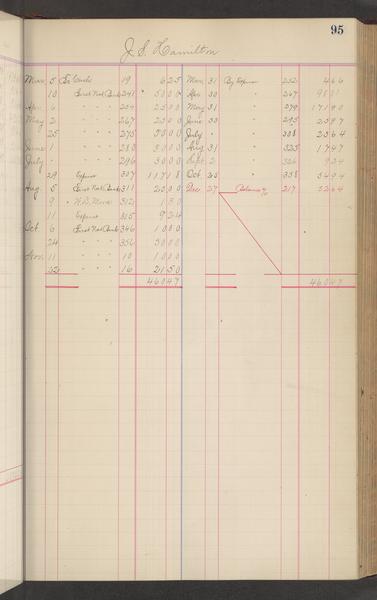 95
J. S. Hamilton
Mar 5 To Cash 19 6 25 Mar 31 By Expense 252 4 66
10 First Nat Bank 241 50 00 Apr 30 " 267
Apr 6 " " " 254 25 00 May 31 " 279 171 90
May 2 " " " 267 25 00 June 30 " 295 25 97
25 " " " 275 50 00 July " 308 25 64
June 1 " " " 280 50 00 Aug 31 " 325 17 47
July " " " 296 50 00 Sept 2 " 326 9 24
29 Expense 307 117 18 Oct 30 " 338 54 94
Aug 5 First Nat Bank 311 25 00 Dec 27 Balance 217 52 64
9 " 312 1 50
11 Expense 315 9 24
Oct 6 First Nat Bank 346 10 00
24 " " " 356 50 00
Nov 11 " " " 10 10 00
22 " " " 16 21 50
460 47 460 47